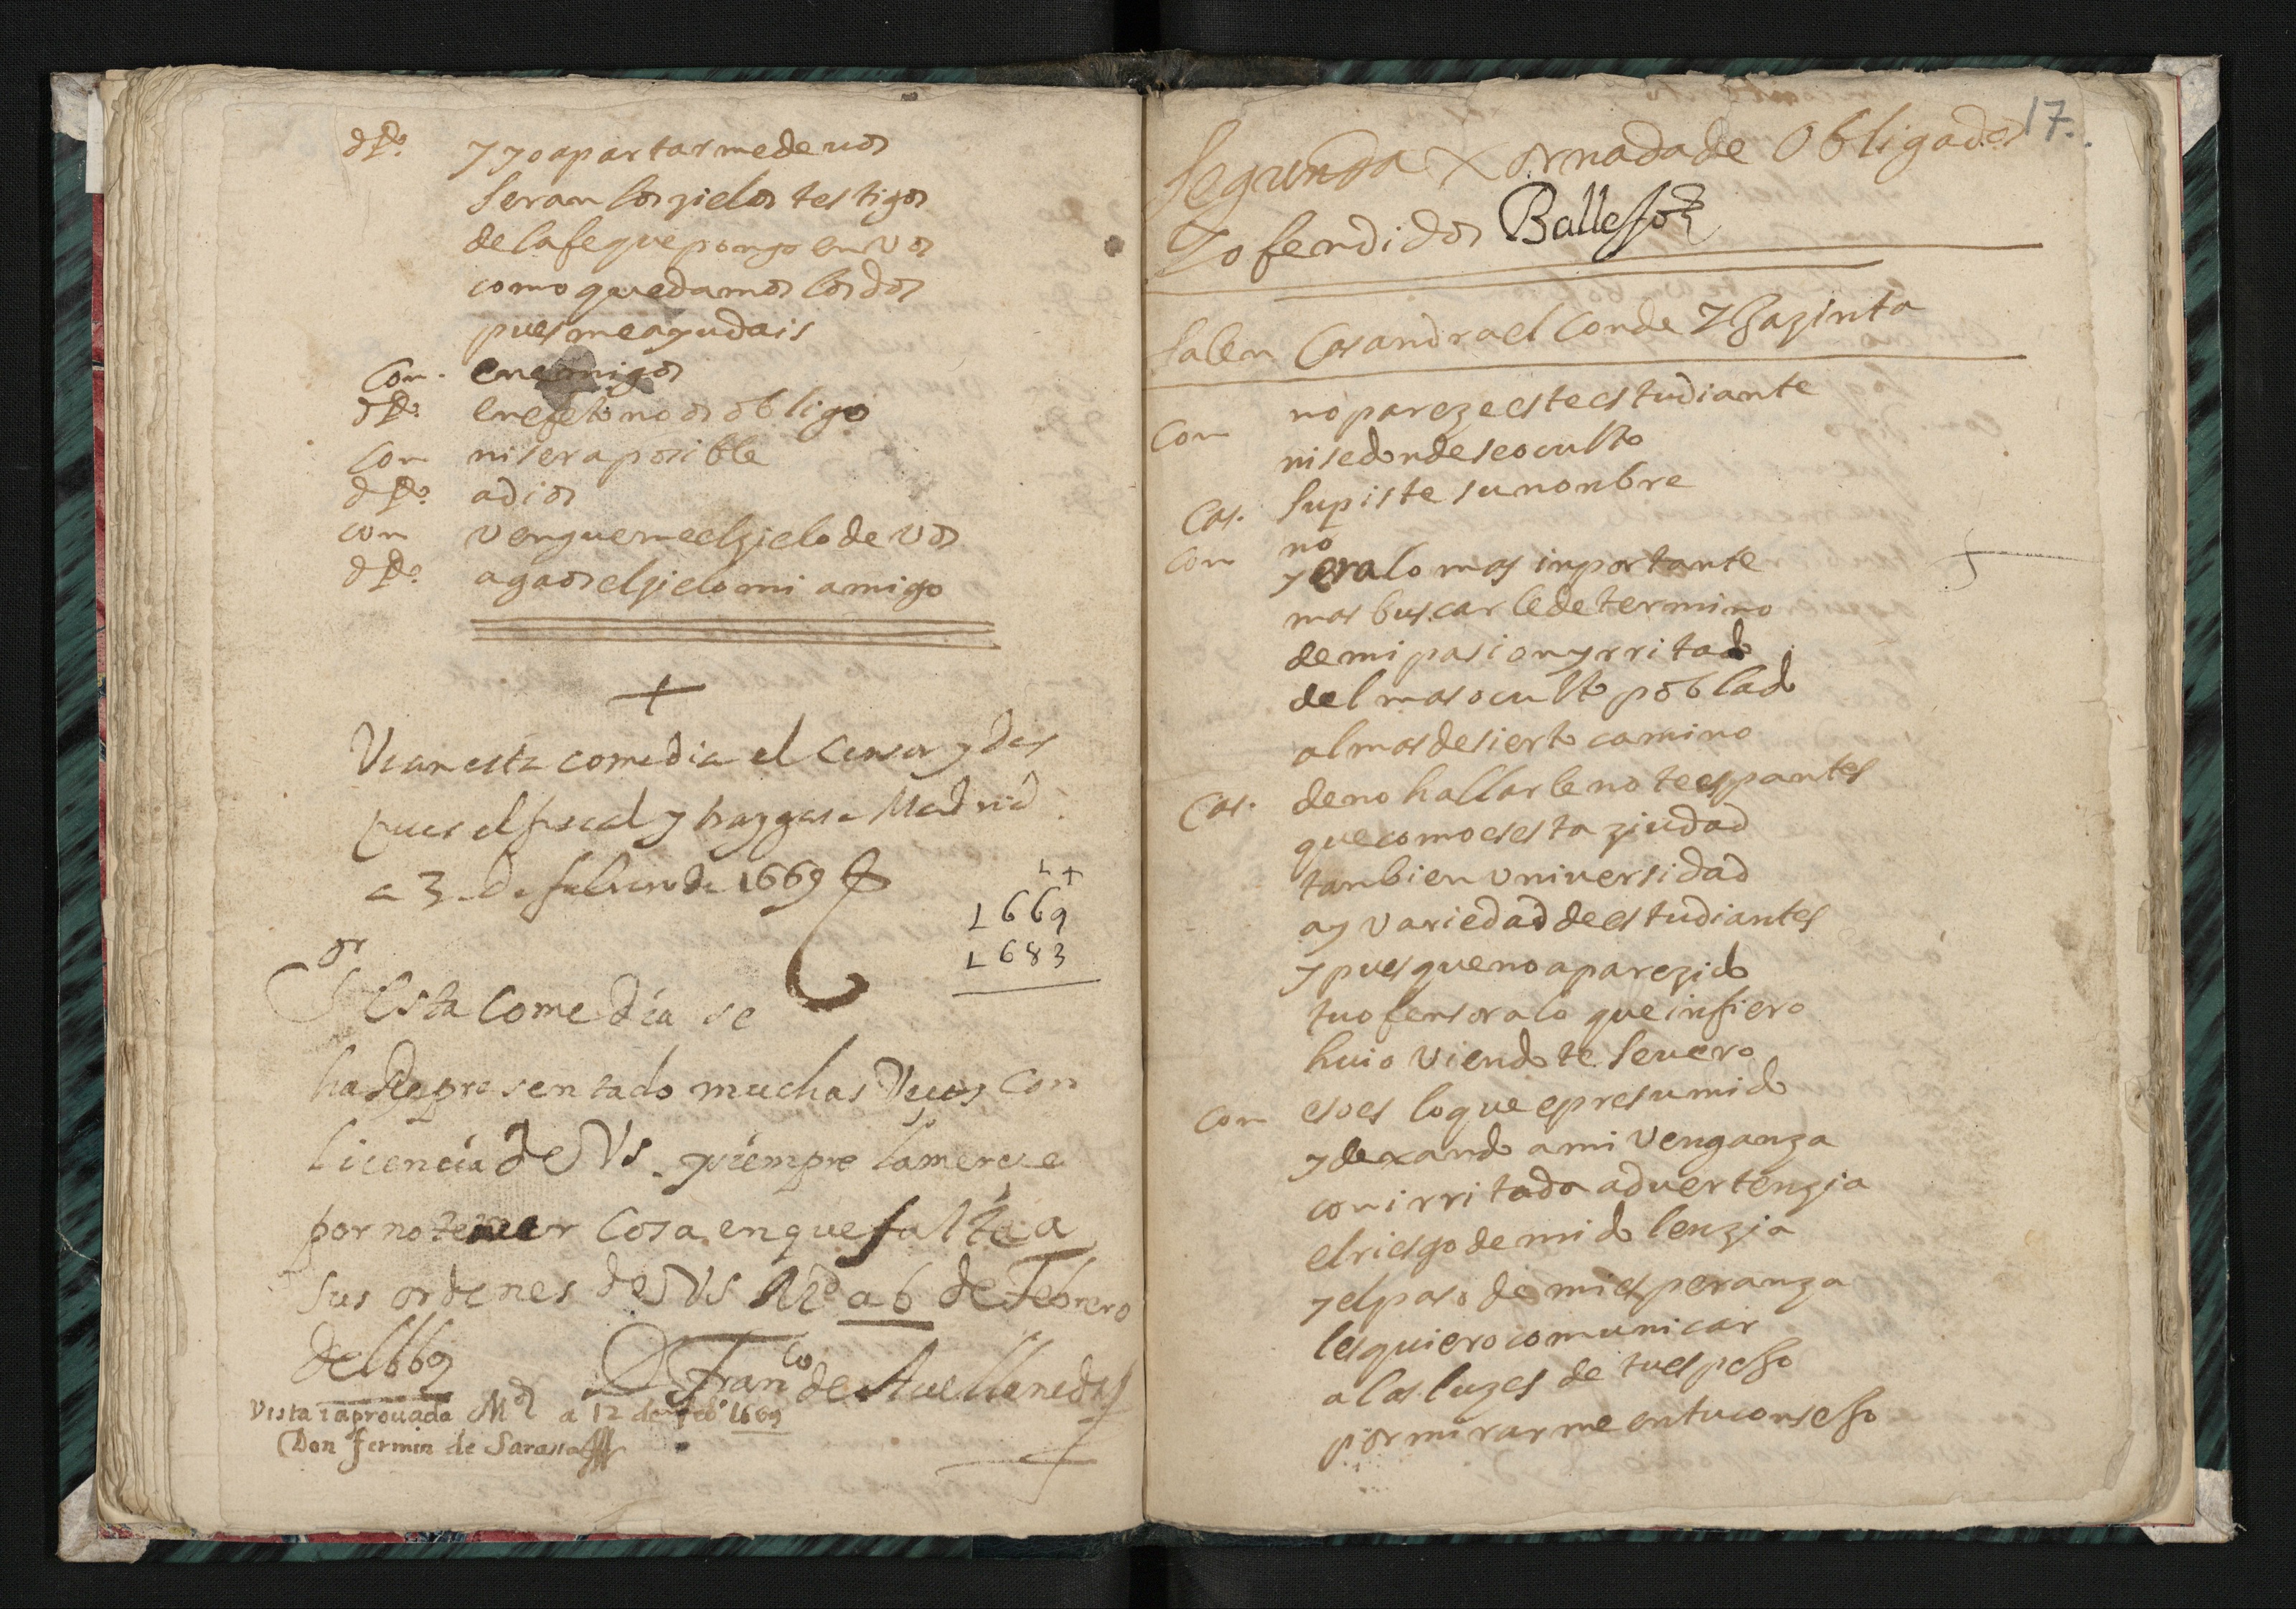 dP.º y yo apartarme de uos
seran los zielos testigos
de la fe que pongo en vos
como quedamos los dos
pues me ayudais
Con. enemigos
dP.º en efeto no os obligo
Con ni sera posible
dP.º adios
con vengueme el zielo de vos
dP.º agaos el zielo mi amigo
+
Vean esta comedia el censor y des
pues el fiscal y traygase Madrid
a 3 de febrero de 1669
1669
1683
Sor Esta Comedia se
ha Representado muchas Veçes Con
licencia de Vs. y siempre la mereçe
por no tener Cosa en que falte a
sus ordenes de Vs Md a 6 de Febrero
de 1669
D Franco de Auellaneda
Vista i aprouada Md a 12 de febº 1669
Don fermin de Sarassa
17.
Segunda Xornada de Obligados
Y ofendidos Ballejo
Salen Casandra el Conde Y Jazinta
Con no pareze este estudiante
ni se donde se oculto
Cas. supiste su nonbre
Con no
y era lo mas inportante
mas buscarle determino
de mi pasion yrritado
del mas oculto poblado
al mas desierto camino
Cas. de no hallarle no te espantes
que como es esta ziudad
tanbien vniversidad
ay variedad de estudiantes
y pues que no a parezido
tu ofensor a lo que infiero
huio viendote seuero
Con eso es lo que e presumido
y dexando a mi venganza
con irritada aduertenzia
el riesgo de mi dolenzia
y el paso de mi esperanza
les quiero comunicar
a las luzes de tu espejo
por mirarme en tu consejo